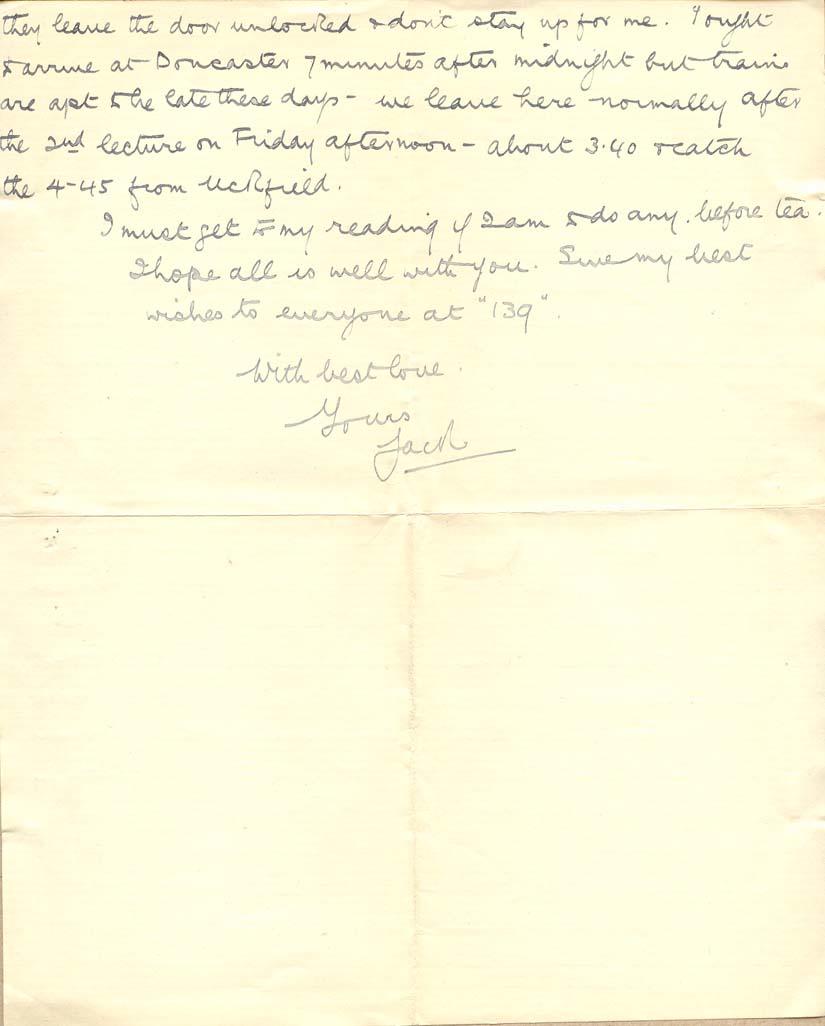 they leave the door unlocked & don't stay up for me. I ought
to arrive at Doncaster 7 minutes after midnight but trains
are apt to be late these days - we leave here normally after
the 2nd lecture on Friday afternoon - about 3.40 & catch
the 4-45 from Uckfield.
I must get to my reading if I am to do any before tea.
I hope all is well with you. Give my best
wishes to everyone at "139".
With best love.
Yours
Jack